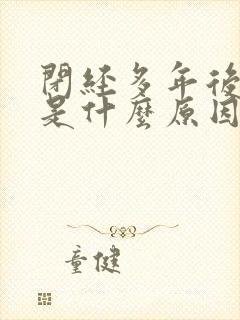 閉經多年後
是什麼原因
童健